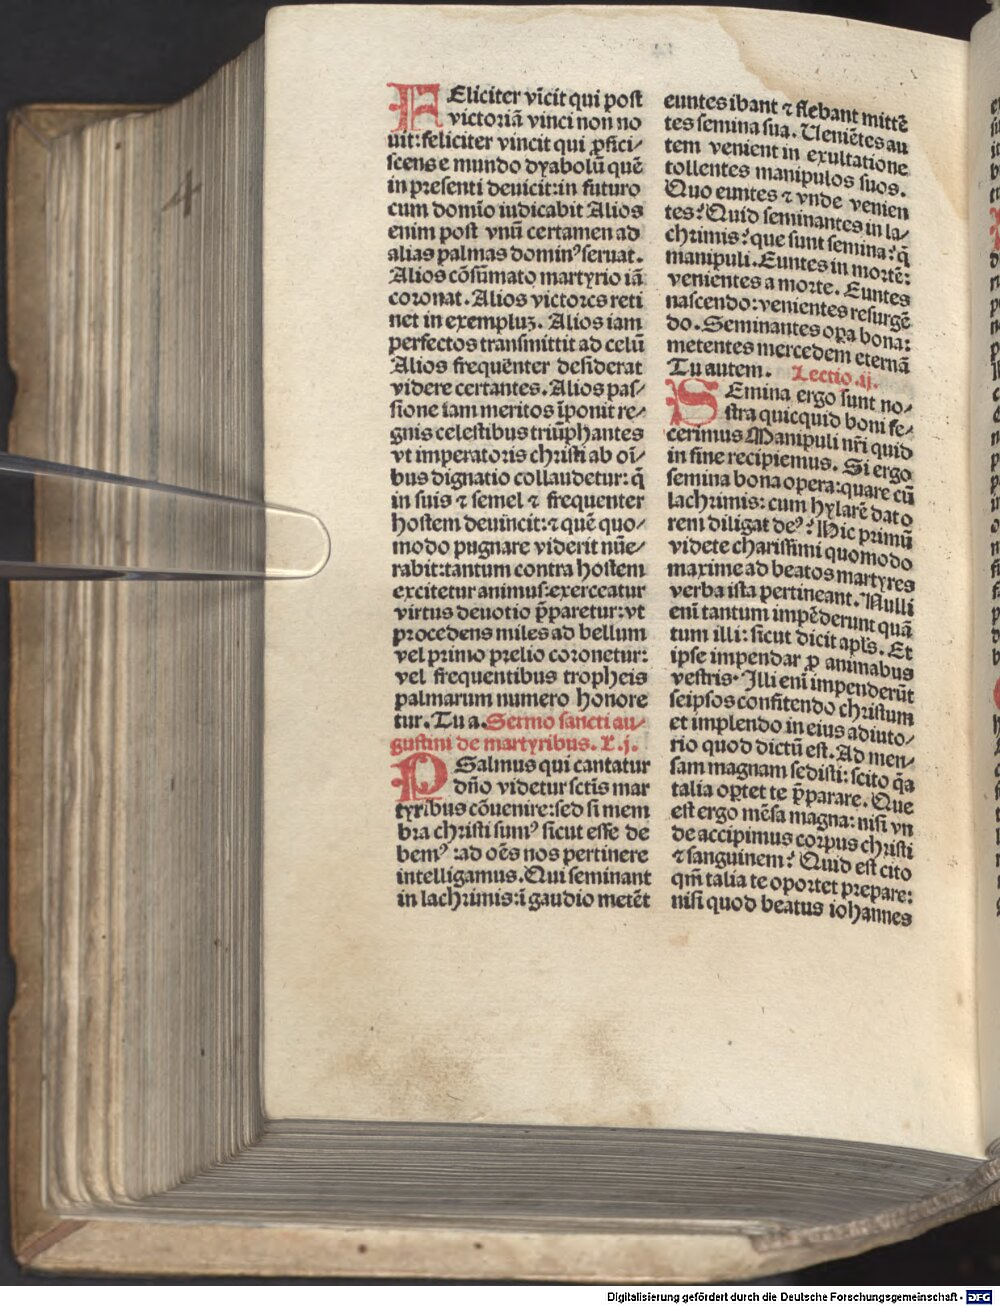 4
FEliciter vīcit qui post
victoriā vinci non no
uit:feliciter vincit qui ꝓfici⸗
scens e mundo dyabolū quē
in presenti deuicit:in futuro
cum domīo iudicabit Alios
enim post vnū certamen ad
alias palmas dominꝰ seruat.
Alios cōsūmato martyrio iā
coronat. Alios victores reti
net in exempluꝫ. Alios iam
perfectos transmittit ad celū
Alios frequēnter desiderat
videre certantes. Alios pas⸗
sione iam meritos īponit re⸗
gnis celestibus triūphantes
vt imperatoris christi ab oī⸗
bus dignatio collaudetur: q̄
in suis ⁊ semel ⁊ frequenter
hostem deuincit:⁊ quē quo⸗
modo pugnare viderit nūe⸗
rabit:tantum contra hostem
excitetur animus:exerceatur
virtus deuotio p̄paretur:vt
procedens miles ad bellum
vel primo prelio coronetur:
vel frequentibus tropheis
palmarum numero honore
tur. Tu a. Sermo sancti au⸗
gustini de martyribus. L. j.
PSalmus qui cantatur
dño videtur sctīs mar
tyribus cōuenire:sed si mem
bra christi sumꝰ sicut esse de
bemꝰ :ad oēs nos pertinere
intelligamus. Qui seminant
in lachrimis:ī gaudio metēt
euntes ibant ⁊ flebant mittē
tes semina sua. Ueniētes au
tem venient in exultatione
tollentes manipulos suos.
Quo euntes ⁊ vnde venien
tes? Quid seminantes in la⸗
chrimis? que sunt semina? q̄
manipuli. Euntes in mortē:
venientes a morte. Euntes
nascendo:venientes resurgē
do. Seminantes oꝑa bona:
metentes mercedem eternā
Tu autem. Lectio .ij.
SEmina ergo sunt no⸗
stra quicquid boni fe⸗
cerimus Manipuli nr̄i quid
in fine recipiemus. Si ergo
semina bona opera:quare cū
lachrimis: cum hylarē dato
rem diligat deꝰ? Hic primū
videte charissimi quomodo
maxime ad beatos martyres
verba ista pertineant. Nulli
enī tantum impēderunt quā
tum illi: sicut dicit apl's. Et
ipse impendar ꝓ animabus
vestris. Illi enī impenderūt
seipsos confitendo christum
et implendo in eius adiuto⸗
rio quod dictū est. Ad men⸗
sam magnam sedisti: scito q̄a
talia oꝑtet te p̄parare. Que
est ergo mēsa magna: nisi vn
de accipimus corpus christi
⁊ sanguinem? Quid est cito
qm̄ talia te oportet prepare:
nisi quod beatus iohannes
Digitalisierung gefördert durch die Deutsche Forschungsgemeinschaft - DFG